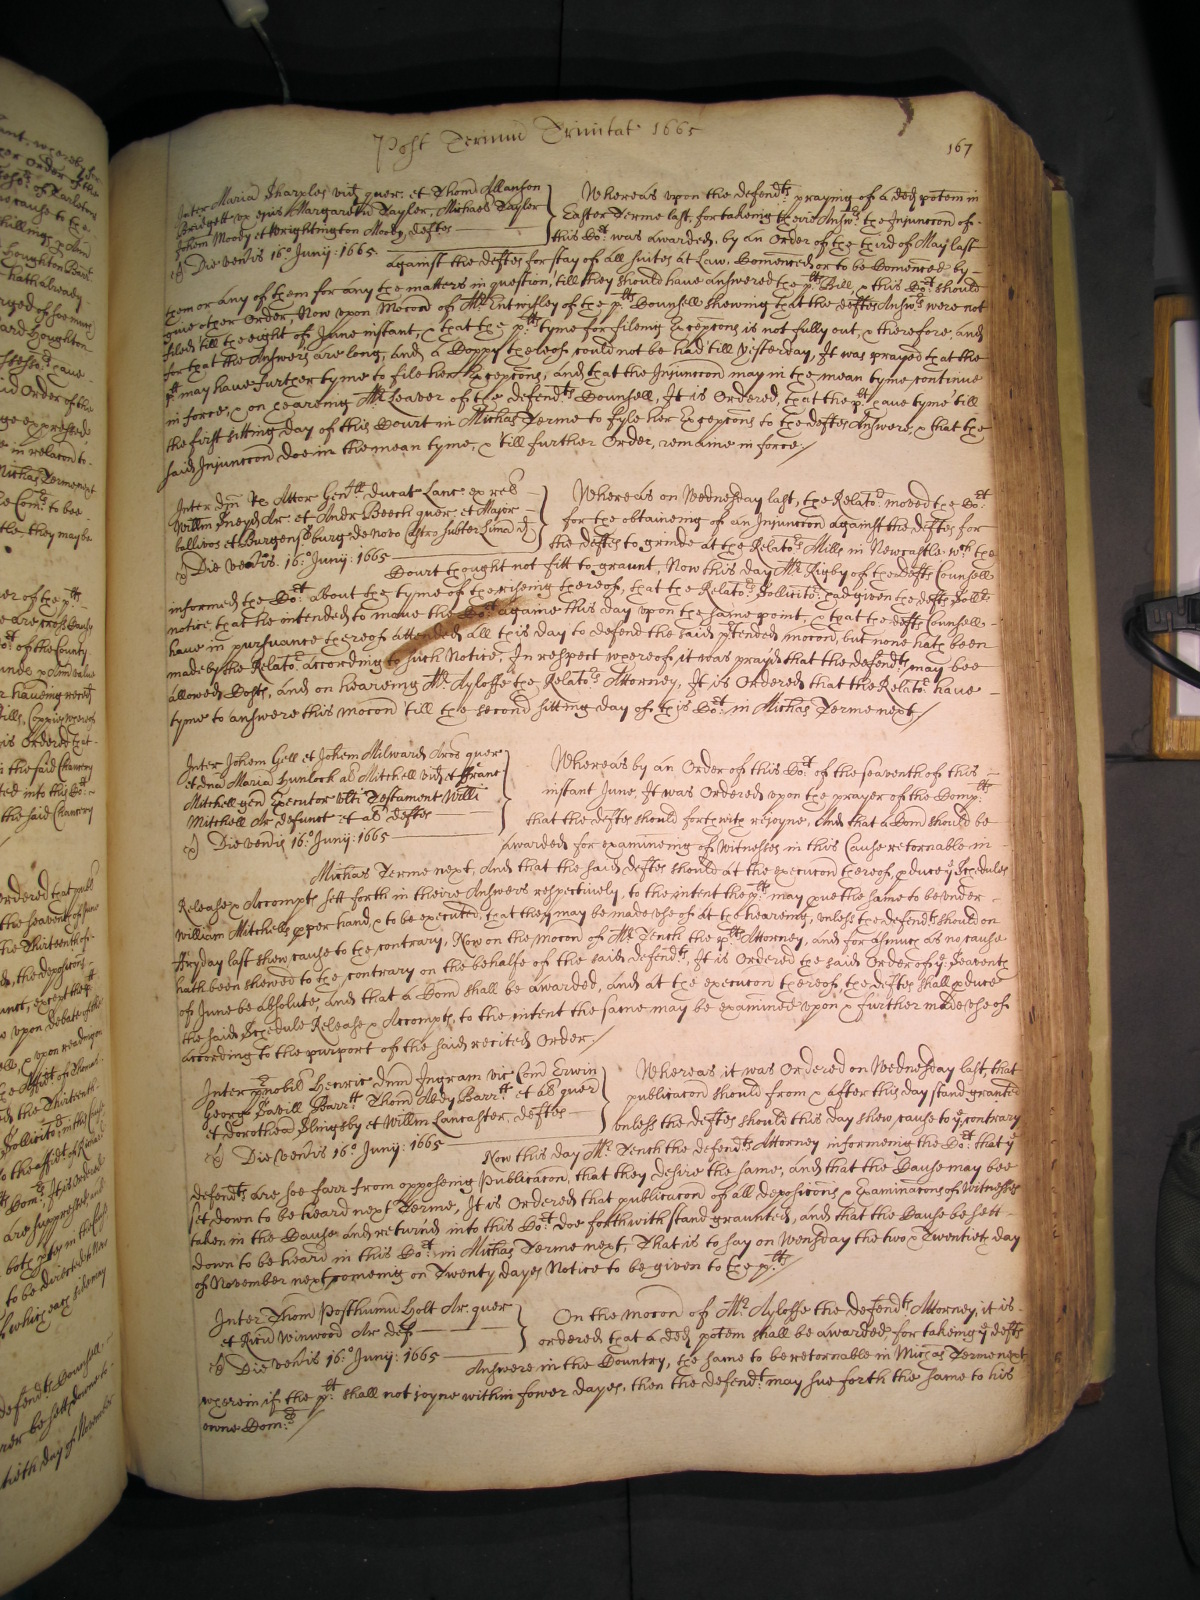 Post Terminū Trinitat 1665
167
Inter Maria Sharples vid quer. et Thom Allanson
Bridgett ux eius Margarettā Tayler, Michael Tayler
Johem Moody et Wrightington Moody, deftes
Die Ven̄is 16o Junij: 1665
Whereas upon the defend.ts praying of a ded potem in
Easter Terme last, for takeing theire Answ.rs the Injunccon of
this Co.rt was awarded, by an Order of the third of May last
against the deftes for stay of all suites at Law, Comenced or to be Comenced by
them or any of them for any the matters in question, till they should have answered the p.lts Bill, & this Co.rt should
give other Order, Now upon Mocon of Mr. Entwisley of the p.lts Counsell shewing that the deftes Answ.rs were not
filed till the eight of June instant, & that the p.lts tyme for fileing Excepcons is not fully out, & therefore and
for that the Answers are long, and a Coppy thereof could not be had till yesterday, It was prayed that the
p.lt may have further tyme to file her Excepcons, and that the Injunccon may in the mean tyme continue
in force, & on heareing Mr. Leaver of the defend.ts Counsell, It is Ordered, that the p.lt have tyme till
the first sitting day of this Court in Michās Terme to fyle her Excepcons to the deftes Answere, & that the
said Injunccon doe in the mean tyme, & till further Order, remaine in force /
Inter Dm̄ Rx Attor Gen.ll Ducat Lanc ex rel
Willm Sneyd Ar. et Andr Beech quer et Major
ballivos et Burgens burge de novo Castro subter Limā d
Die Ven̄is. 16.o Junij: 1665
Whereas on Wednesday last, the Relato.r moved the Co.rt
for the obtaineing of an Injunccon against the deftes for
the deftes to grinde at the Relato.rs Mills in Newcastle wch the
Court thought not fitt to graunt, Now this day Mr. Rigby of the defts Counsell
informed the Co.rt about the tyme of the riseing thereof, that the Relato.rs Sollicito.r had given the defts Sollr
notice that he intended to move the Co.rt againe this day upon the same point, & that the defts Counsell
have in pursuance thereof attended all this day to defend the said p̄tended mocon, but none hath been
made by the Relato.r according to such Notice, In respect whereof, it was prayd that the defend.ts may bee
allowed Costs, and on heareing Mr. Ayloffe the Relato.rs Attorney, It is Ordered that the Relato.r have
tyme to answere this mocon till the second sitting day of this Co.rt in Michas Terme next /
Inter Johem Gell et Johem Milward Aros quer
et dnā Maria Hunlock als Mitchell vid et ffranc
Mitchell gen Executor ulti Testament Willi
Mitchell Ar defunct et al deftes
Die Ven̄is 16.o Junij: 1665
Whereas by an Order of this Co.rt of the seaventh of this
instant June, It was Ordered upon the prayer of the Comp.lts
that the deftes should forthwith rejoyne, And that a Com should be
awarded for examineing of Witnesses in this Cause retornable in
Michas Terme next, And that the said deftes should at the execucon thereof, produce ye Schedules
Release & Accompts sett forth in theire Answers respectively, to the intent the p.lts may prove the same to be under
William Mitchells proper hand, & to be executed, that they may be made use of at the hearing, unless the defend.ts should on
ffryday last shew cause to the contrary, Now on the mocon of Mr. Tench the p.lts Attorney, and for asmuch as no cause
hath been shewed to the contrary on the behalfe of the said defend.ts, It is Ordered the said Order of ye Seaventh
of June be absolute, and that a Com shall be awarded, and at the execucon thereof the deftes shall p̄duce
the said Schedule Release & Accompts, to the intent the same may be examined upon & further made use of
according to the purport of the said recited Order /
Inter p̄nobil Henric Dnm Ingram vic Com Erwin
George Savill Barr.tt Thom Abdy Barr.tt et als quer
et Dorothea Slingsby et Willm Lancaster, deftes
Die Ven̄is 16.o Junij: 1665
Whereas it was Ordered on Wednesday last, that
publicacon should from & after this day stand granted
unless the deftes should this day shew cause to ye contrary
Now this day Mr. Tench the defend.ts Attorney informeing the Co.rt that ye
defend.ts are soe farr from opposeing Publicacon, that they desire the same, and that the Cause may bee
set down to be heard next Terme, It is Ordered that publicacon of all deposicons & Examinacons of Witnesses
taken in the Cause and returnd into this Co.rt doe forthwith stand graunted, and that the Cause be sett
down to be heard in this Co.rt in Michas Terme next, That is to say on Wensday the two & Twentieth day
of November next comeing on Twenty dayes Notice to be given to the p.lts /
Inter Thom Posthumū Holt Ar. quer
et Ricū Winwood Ar. def
Die Ven̄is 16.o Junij: 1665
On the mocon of Mr. Ayloffe the defend.ts Attorney, it is
ordered that a ded potem shall be awarded for takeing ye defts
Answere in the Country, the same to be retornable in Michas Terme next
wherein if the p.lt shall not joyne within fower dayes, then the defend.t may sue forth the same to his
owne Com.rs /